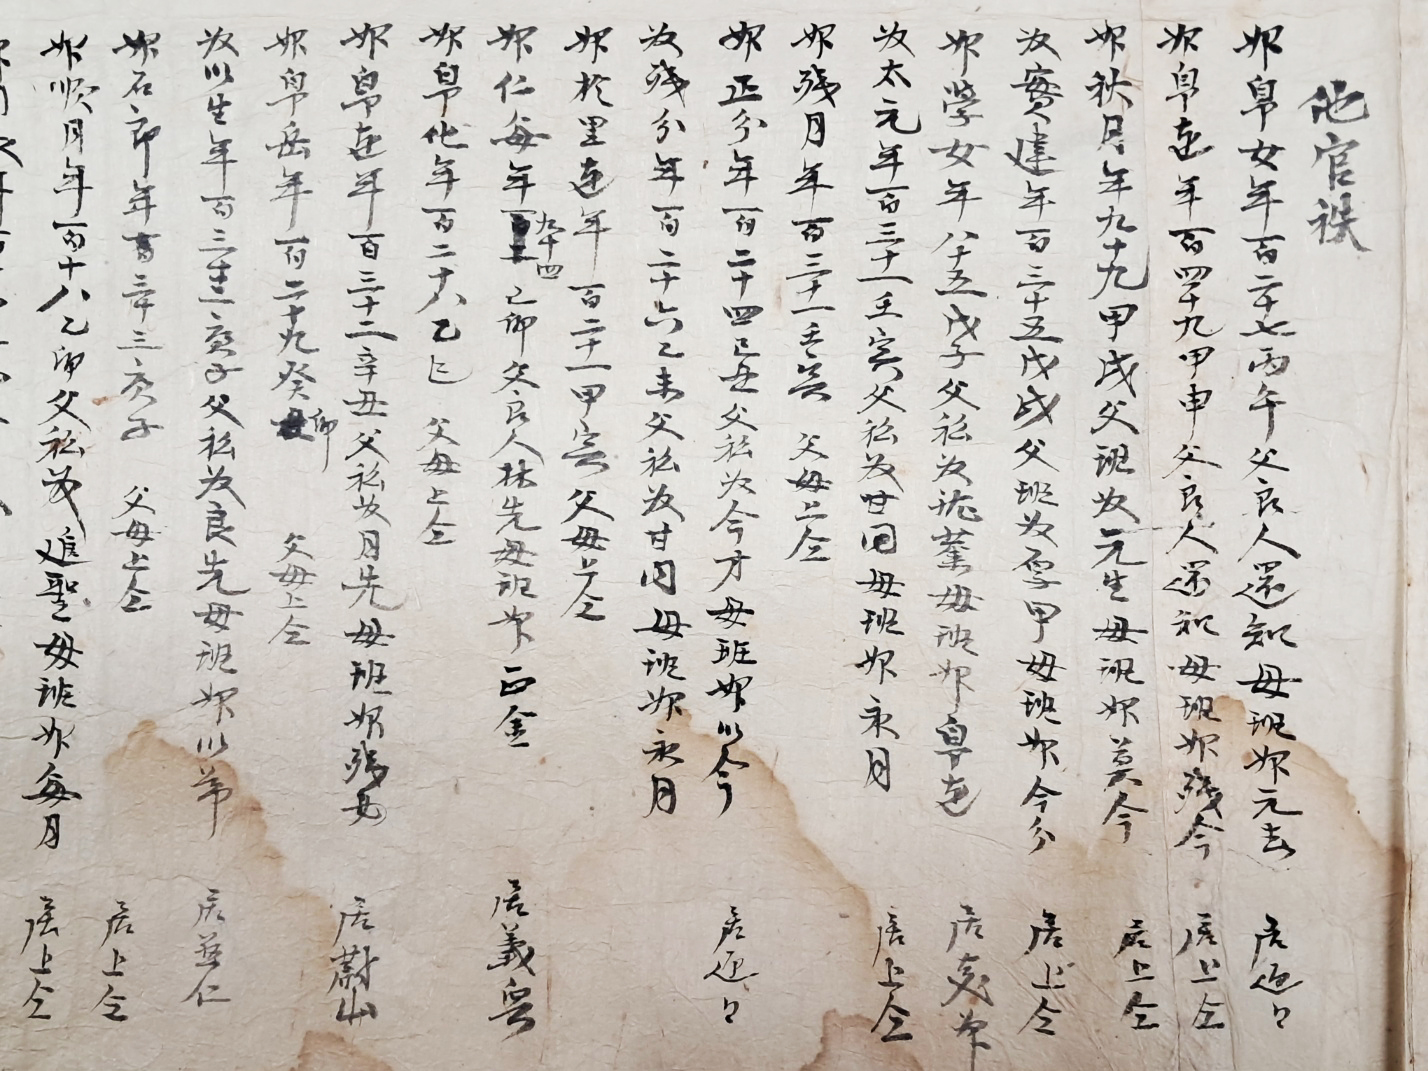 他官秩
婢㿝女年百二十七丙午父良人還知母班婢元去 居迎日
婢㿝連年百四十九甲申父良人還知母班婢殘今 居上仝
婢秋月年九十九甲戌父班奴元生母班婢莫今 居上仝
奴實建年百三十五戊戌父班奴厚甲母班婢今分 居上仝
婢學女年八十五戊子父私奴 母班婢㿝連
奴太元年百三十一壬寅父私奴甘同母班婢永月 居上仝
婢殘月年百三十一壬寅 父母上仝
婢正分年百二十四己丑父私奴今才母班婢以今 居迎日
奴殘分年百二十六乙未父私奴甘同母班婢永月
婢於里連年百二十一甲寅父母上仝
婢仁每年九十四乙卯父良人林先母班婢正金 居義興
婢㿝化年百二十八乙巳 父母上仝
婢㿝連年百三十二辛丑父私奴月先母班婢殘女 居蔚山
婢㿝岳年百二十九癸卯 父母上仝
奴以生年百三十一庚子父私奴良先母班婢以 居 仁
婢石 年百三十三庚子 父母上仝 居上仝
婢順月年百十八乙卯父私奴進聖母班婢每月 居上仝